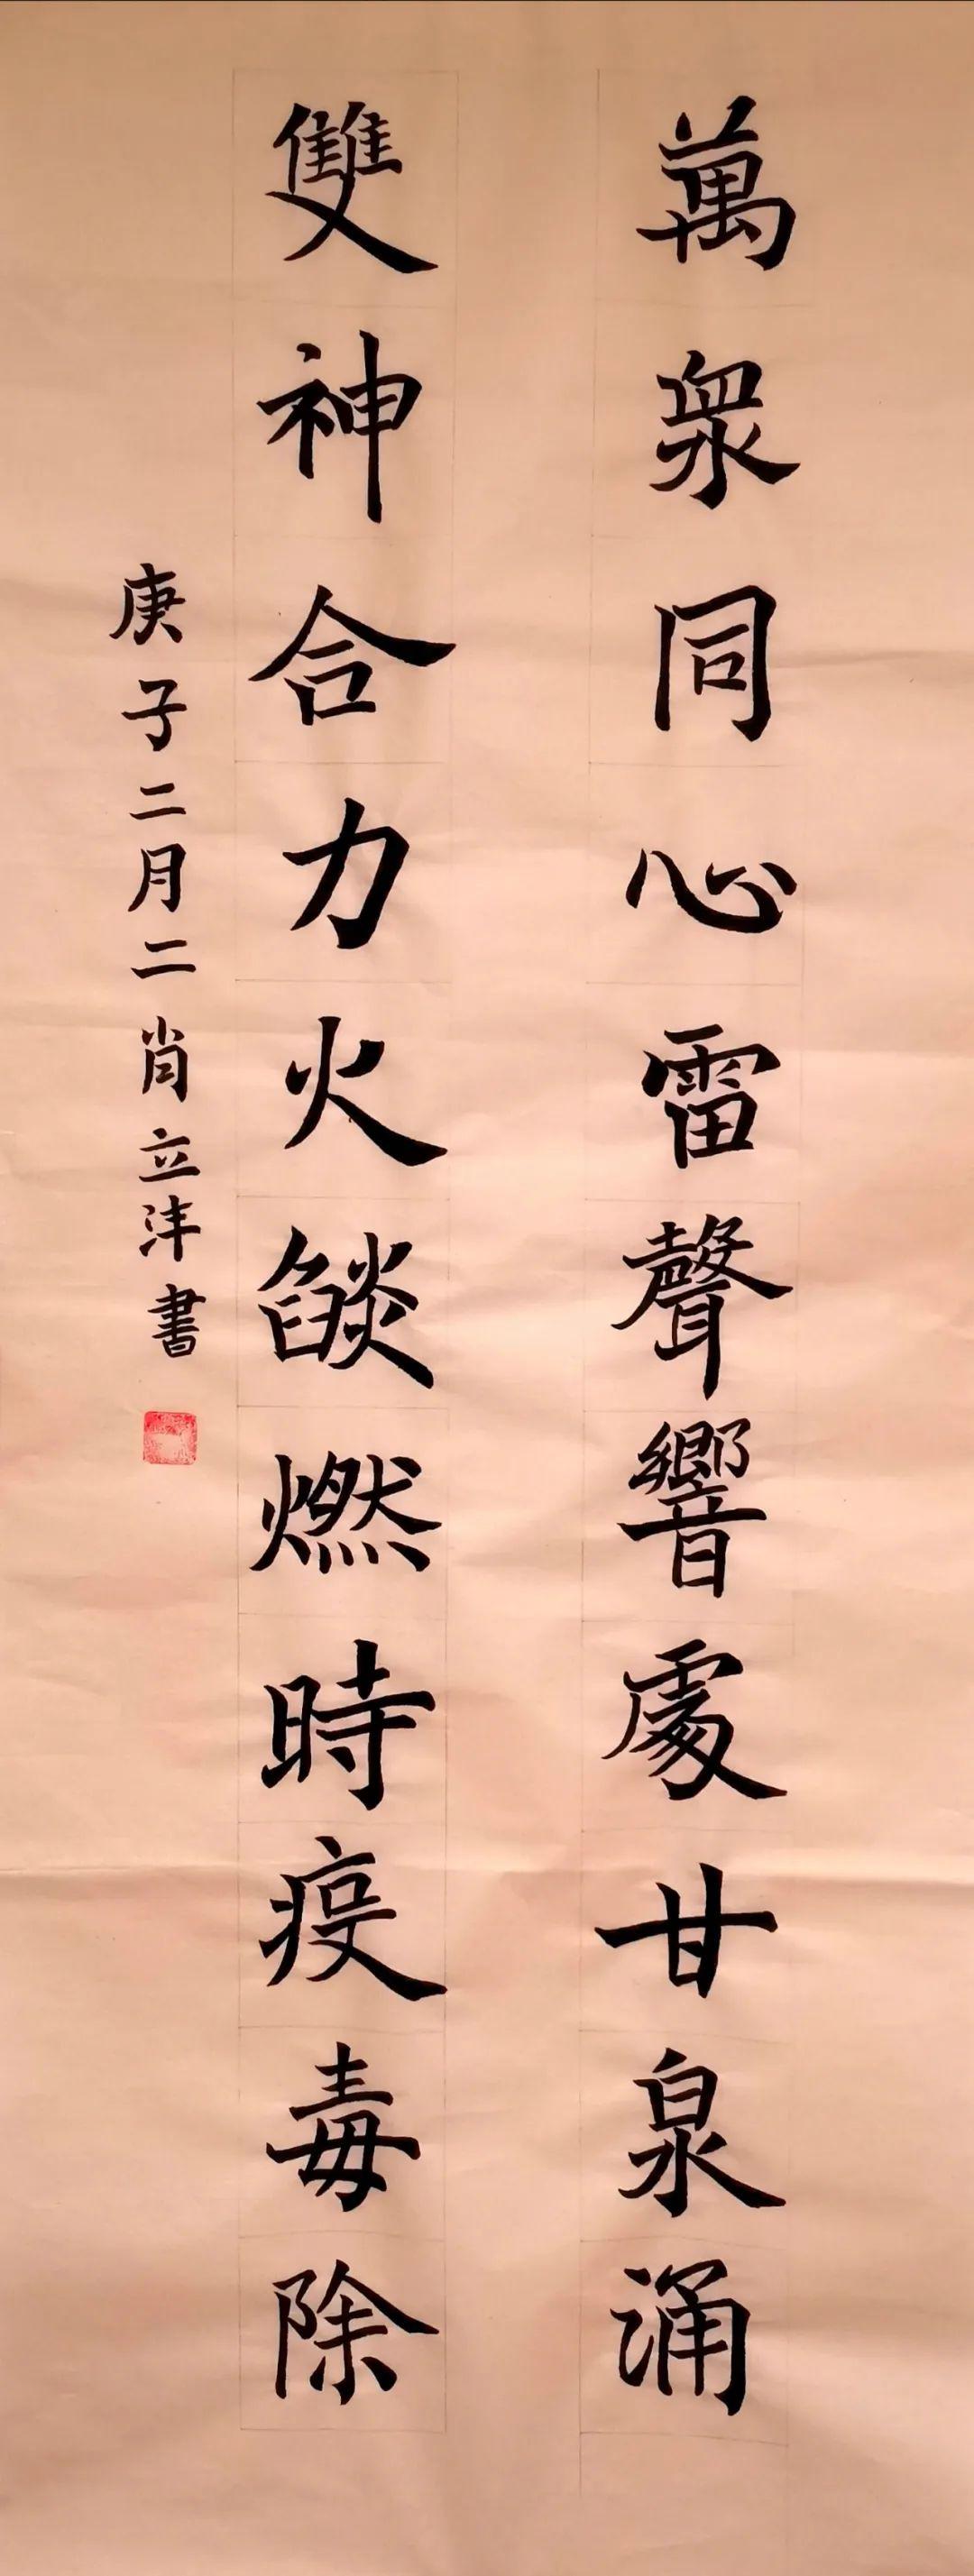 萬衆同心雷聲響處甘泉涌
雙神合力火燄燃時疫毒除
庚子二月二肖立沣書